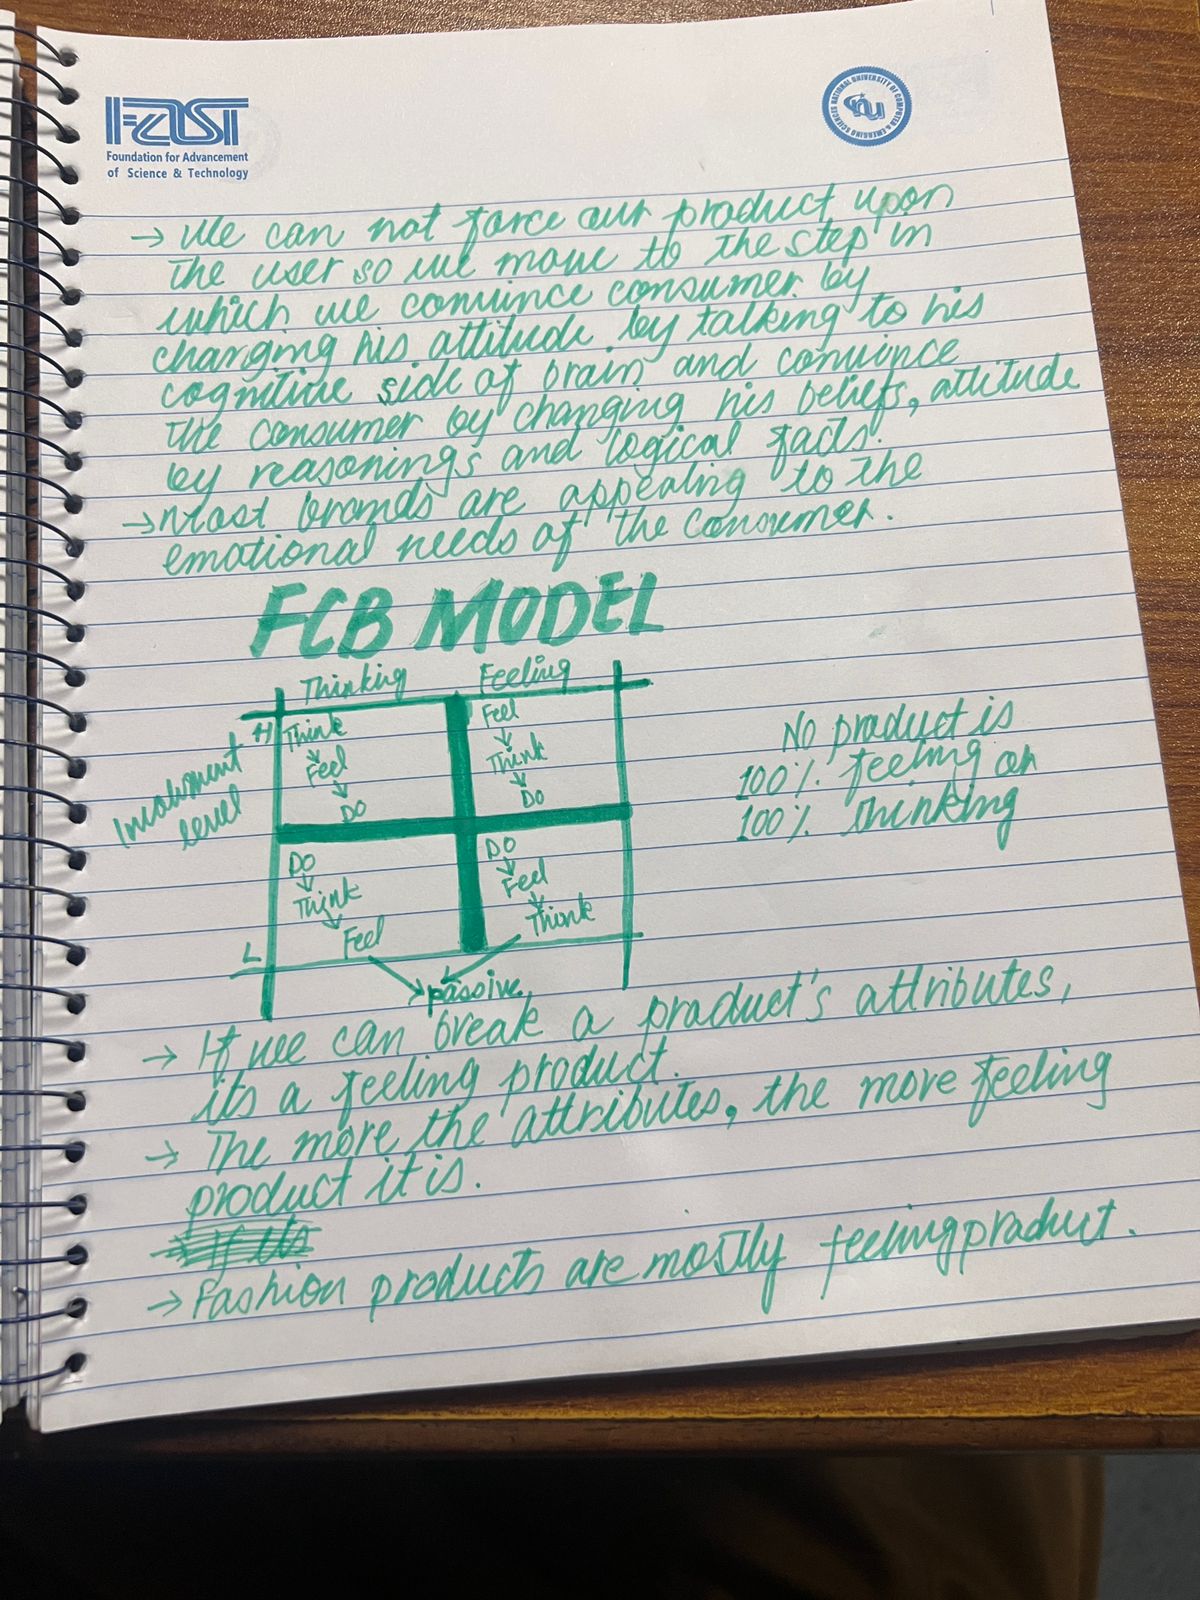 FAST
Foundation for Advancement
of Science & Technology
NATIONAL UNIVERSITY OF COMPUTER & EMERGING SCIENCES
nu
→ We can not force our product upon
the user so we move to the step in
which we convince consumer by
changing his attitude by talking to his
cognitive side of brain and convince
the consumer by changing his beliefs, attitude
by reasonings and logical facts.
→ Most brands are appealing to the
emotional needs of the consumer.
FCB MODEL
Thinking Feeling
Involvment
Level
H
Think
↓
Feel
↓
Do
Feel
↓
Think
↓
Do
L
Do
↓
Think
↓
Feel
Do
↓
Feel
↓
Think
passive
No product is
100% feeling or
100% thinking
→ If we can break a product's attributes,
its a feeling product.
→ The more the attributes, the more feeling
product it is.
→ If its
→ Fashion products are mostly feeling product.